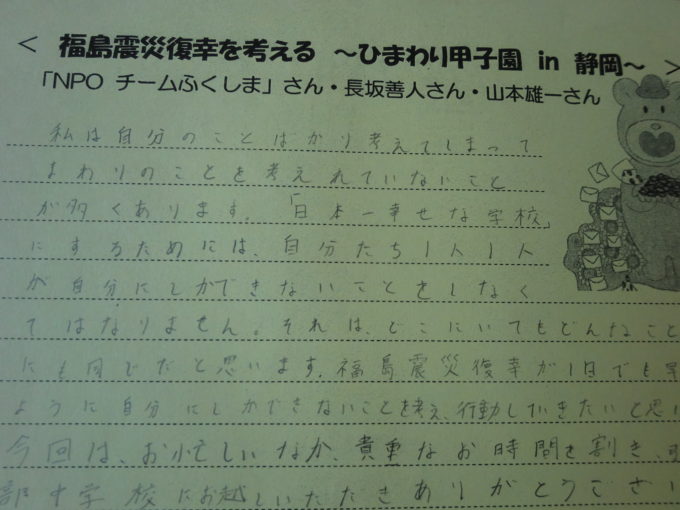 ＜ 福島震災復幸を考える ～ひまわり甲子園 in 静岡～ ＞
「NPO チームふくしま」さん・長坂善人さん・山本雄一さん
私は自分のことばかり考えてしまって
まわりのことを考えれていないこと
が多くあります。「日本一幸せな学校」
にするためには、自分たち1人1人
が自分にしかできないことをしなく
てはなりません。それは、どこにいてもどんなこと
にも同じだと思います。福島震災復幸が1日でも早
ように自分にしかできないことを考え、行動していきたいと思い
今回は、お忙しいなか、貴重なお時間を割き、
部中学校にお越しいただきありがとうござい